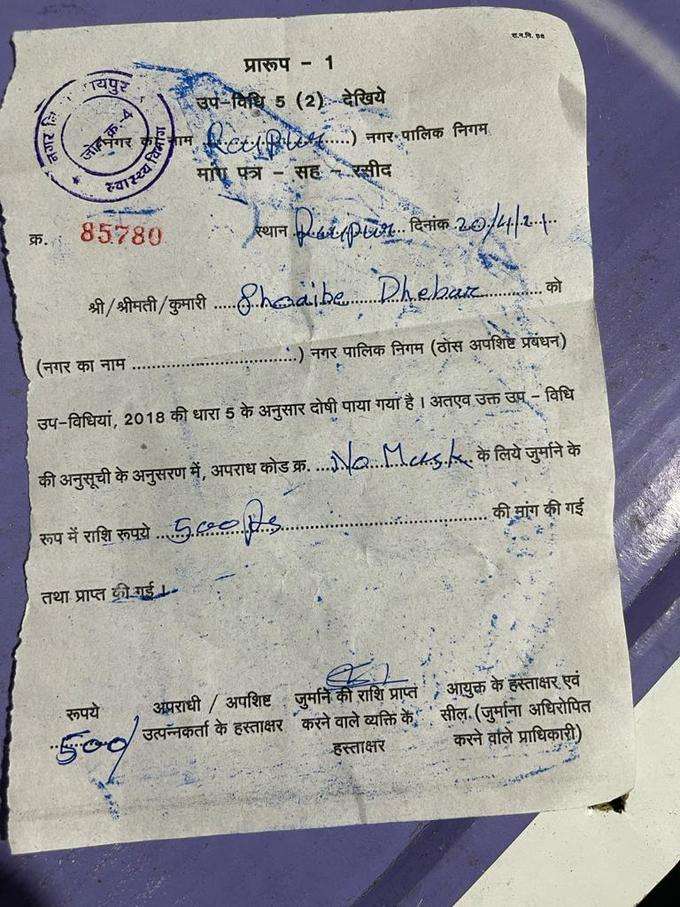 रा.न.नि. प्रेस
प्रारूप - 1
उप-विधि 5 (2) देखिये
नगर का नाम Raipur.....) नगर पालिक निगम
मांग पत्र - सह - रसीद
नगर रायपुर
जोन क्र. 4
स्वास्थ्य विभाग
क्र. 85780 स्थान Raipur.. दिनांक 20/4/21..
श्री/श्रीमती/कुमारी ..... Shoaibe Dhebar ..... को
(नगर का नाम ..............................) नगर पालिक निगम (ठोस अपशिष्ट प्रबंधन)
उप-विधियां, 2018 की धारा 5 के अनुसार दोषी पाया गया है । अतएव उक्त उप - विधि
की अनुसूची के अनुसरण में, अपराध कोड क्र. ...No Mask... के लिये जुर्माने के
रूप में राशि रूपये ...500 Rs.............................. की मांग की गई
तथा प्राप्त की गई ।
रूपये
500/
अपराधी / अपशिष्ट
उत्पन्नकर्ता के हस्ताक्षर
जुर्माने की राशि प्राप्त
करने वाले व्यक्ति के
हस्ताक्षर
आयुक्त के हस्ताक्षर एवं
सील (जुर्माना अधिरोपित
करने वाले प्राधिकारी)